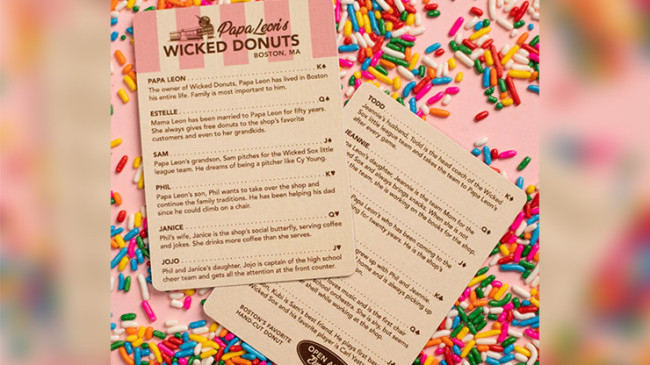 Papa Leon's
WICKED DONUTS
BOSTON, MA
PAPA LEON K♠
The owner of Wicked Donuts, Papa Leon has lived in Boston
his entire life. Family is most important to him.
ESTELLE Q♠
Mama Leon has been married to Papa Leon for fifty years.
She always gives free donuts to the shop's favorite
customers and even to her grandkids.
SAM J♠
Papa Leon's grandson, Sam pitches for the Wicked Sox little
league team. He dreams of being a pitcher like Cy Young.
PHIL K♥
Papa Leon's son, Phil wants to take over the shop and
continue the family traditions. He has been helping his dad
since he could climb on a chair.
JANICE Q♥
Phil's wife, Janice is the shop's social butterfly, serving coffee
and jokes. She drinks more coffee than she serves.
JOJO J♥
Phil and Janice's daughter, JoJo is captain of the high school
cheer team and gets all the attention at the front counter.
TODD K♦
Jeannie's husband, Todd is the head coach of the Wicked
Sox little league team and takes the team to Papa Leon's
after every game.
JEANNIE Q♦
Papa Leon's daughter, Jeannie is the team Mom for the
Sox and always brings snacks. When she is not
the team, she is working on the books for the shop.
J♦
Papa Leon's who has been coming to the
for twenty years. He is the shop's
K♣
grew up with Phil and Jeannie.
home and is always picking up
Q♣
loves music and is the first chair
school orchestra. She is shy, but seems
shell while working at the shop.
J♣
is Sam's best friend. He plays first base
Wicked Sox and his favorite player is Carl
BOSTON'S FAVORITE
HAND-CUT DONUT
OPEN